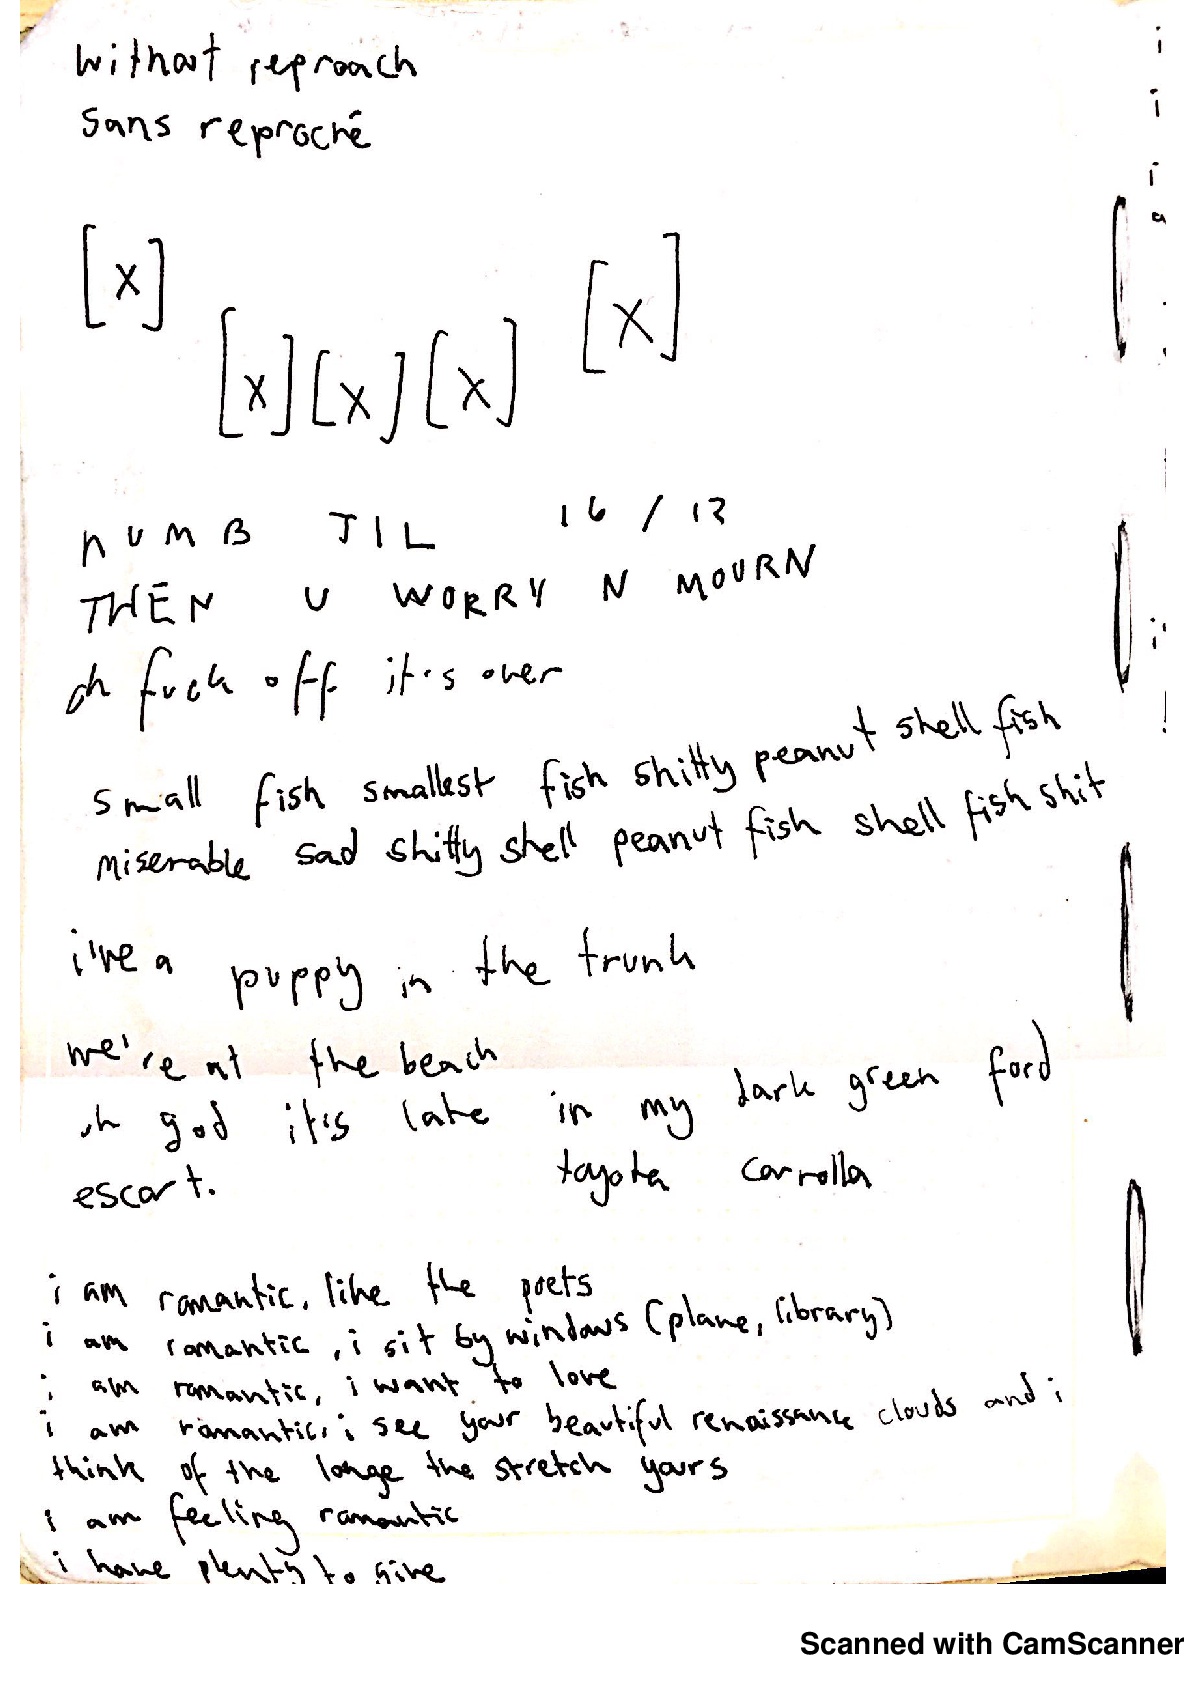 without reproach
sans reproché
[x]
[x][x][x]
[x]
NUMB JIL 16/12
THEN U WORRY N MOURN
oh fuck off it's over
small fish smallest fish shitty peanut shell fish
miserable sad shitty shell peanut fish shell fish shit
i've a puppy in the trunk
we're at the beach
oh god it's late in my dark green ford
escort. toyota corrolla
i am romantic, like the poets
i am romantic, i sit by windows (plane, library)
i am romantic, i want to love
i am romantic, i see your beautiful renaissance clouds and i
think of the longe the stretch yours
i am feeling romantic
i have plenty to give
Scanned with CamScanner